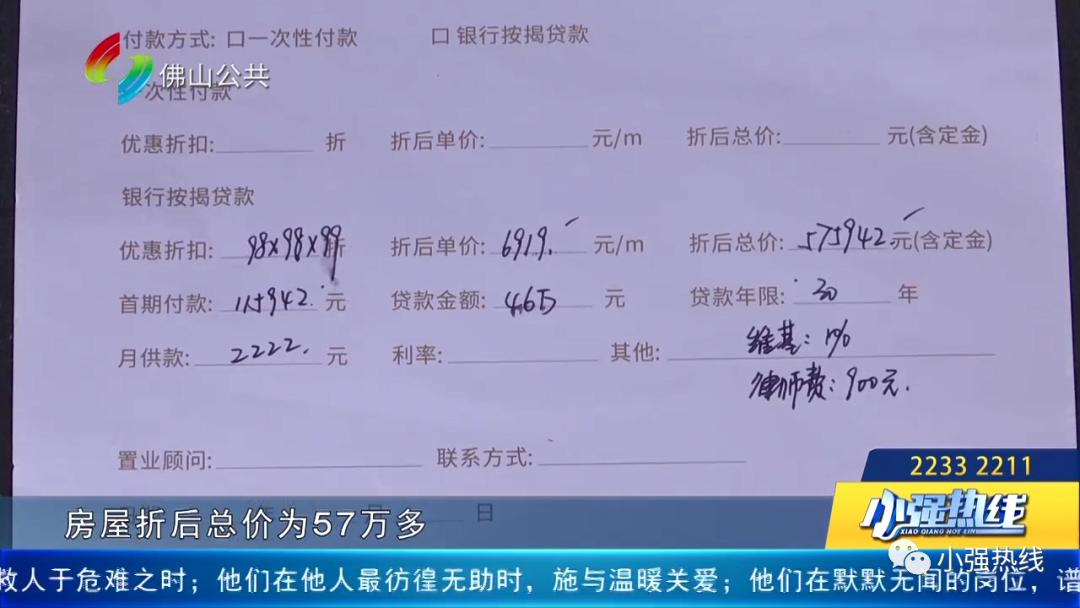 付款方式: 口一次性付款 口 银行按揭贷款
佛山公共
次性付款
优惠折扣: 折 折后单价: 元/m 折后总价: 元(含定金)
银行按揭贷款
优惠折扣: 98×98×99 折 折后单价: 6919. 元/m 折后总价: 575942 元(含定金)
首期付款: 115942. 元 贷款金额: 46万 元 贷款年限: 30 年
月供款: 2222. 元 利率: 其他: 维基: 1%
律师费: 900元.
置业顾问: 联系方式:
日
2233 2211
房屋折后总价为57万多
小强热线
XIAO QIANG HOT LIN
小强热线
救人于危难之时；他们在他人最彷徨无助时，施与温暖关爱；他们在默默无闻的岗位，谱